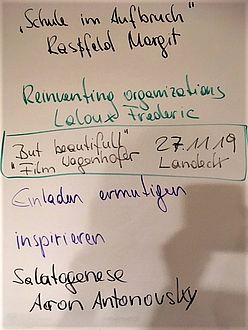 „Schule im Aufbruch"
Rasfeld Margit
Reinventing organizations
Laloux Frederic
But beautifull" 27.11.19
"Film Wagenhofer Landeck
Einladen ermutigen
inspirieren
Salutogenese
Aaron Antonovsky